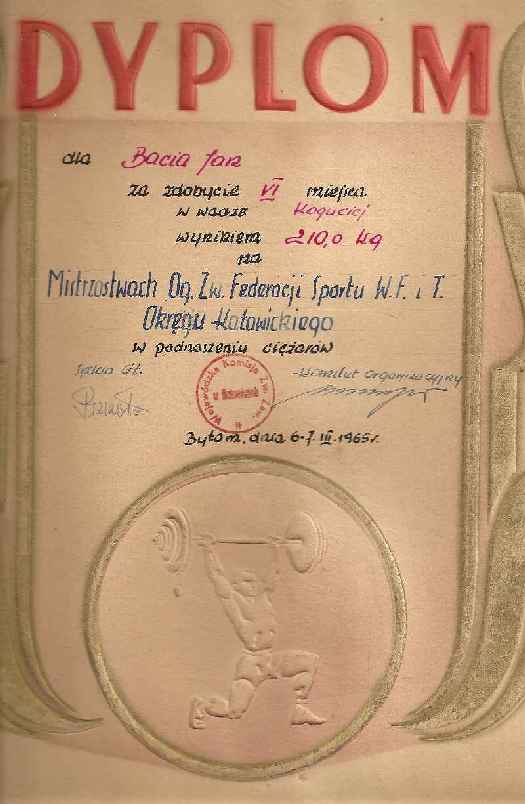 DYPLOM
dla Bacia Jan
za zdobycie VI miejsca
w wadze Koguciej
wynikiem 210,0 kg
na
Mistrzostwach Og. Zw. Federacji Sportu W.F. i T.
Okręgu Katowickiego
w podnoszeniu ciężarów
Sędzia Gł. Komitet Organizacyjny
Wojewódzka Komisja Zw. Zaw.
Bytom, dnia 6-7 III 1965 r.